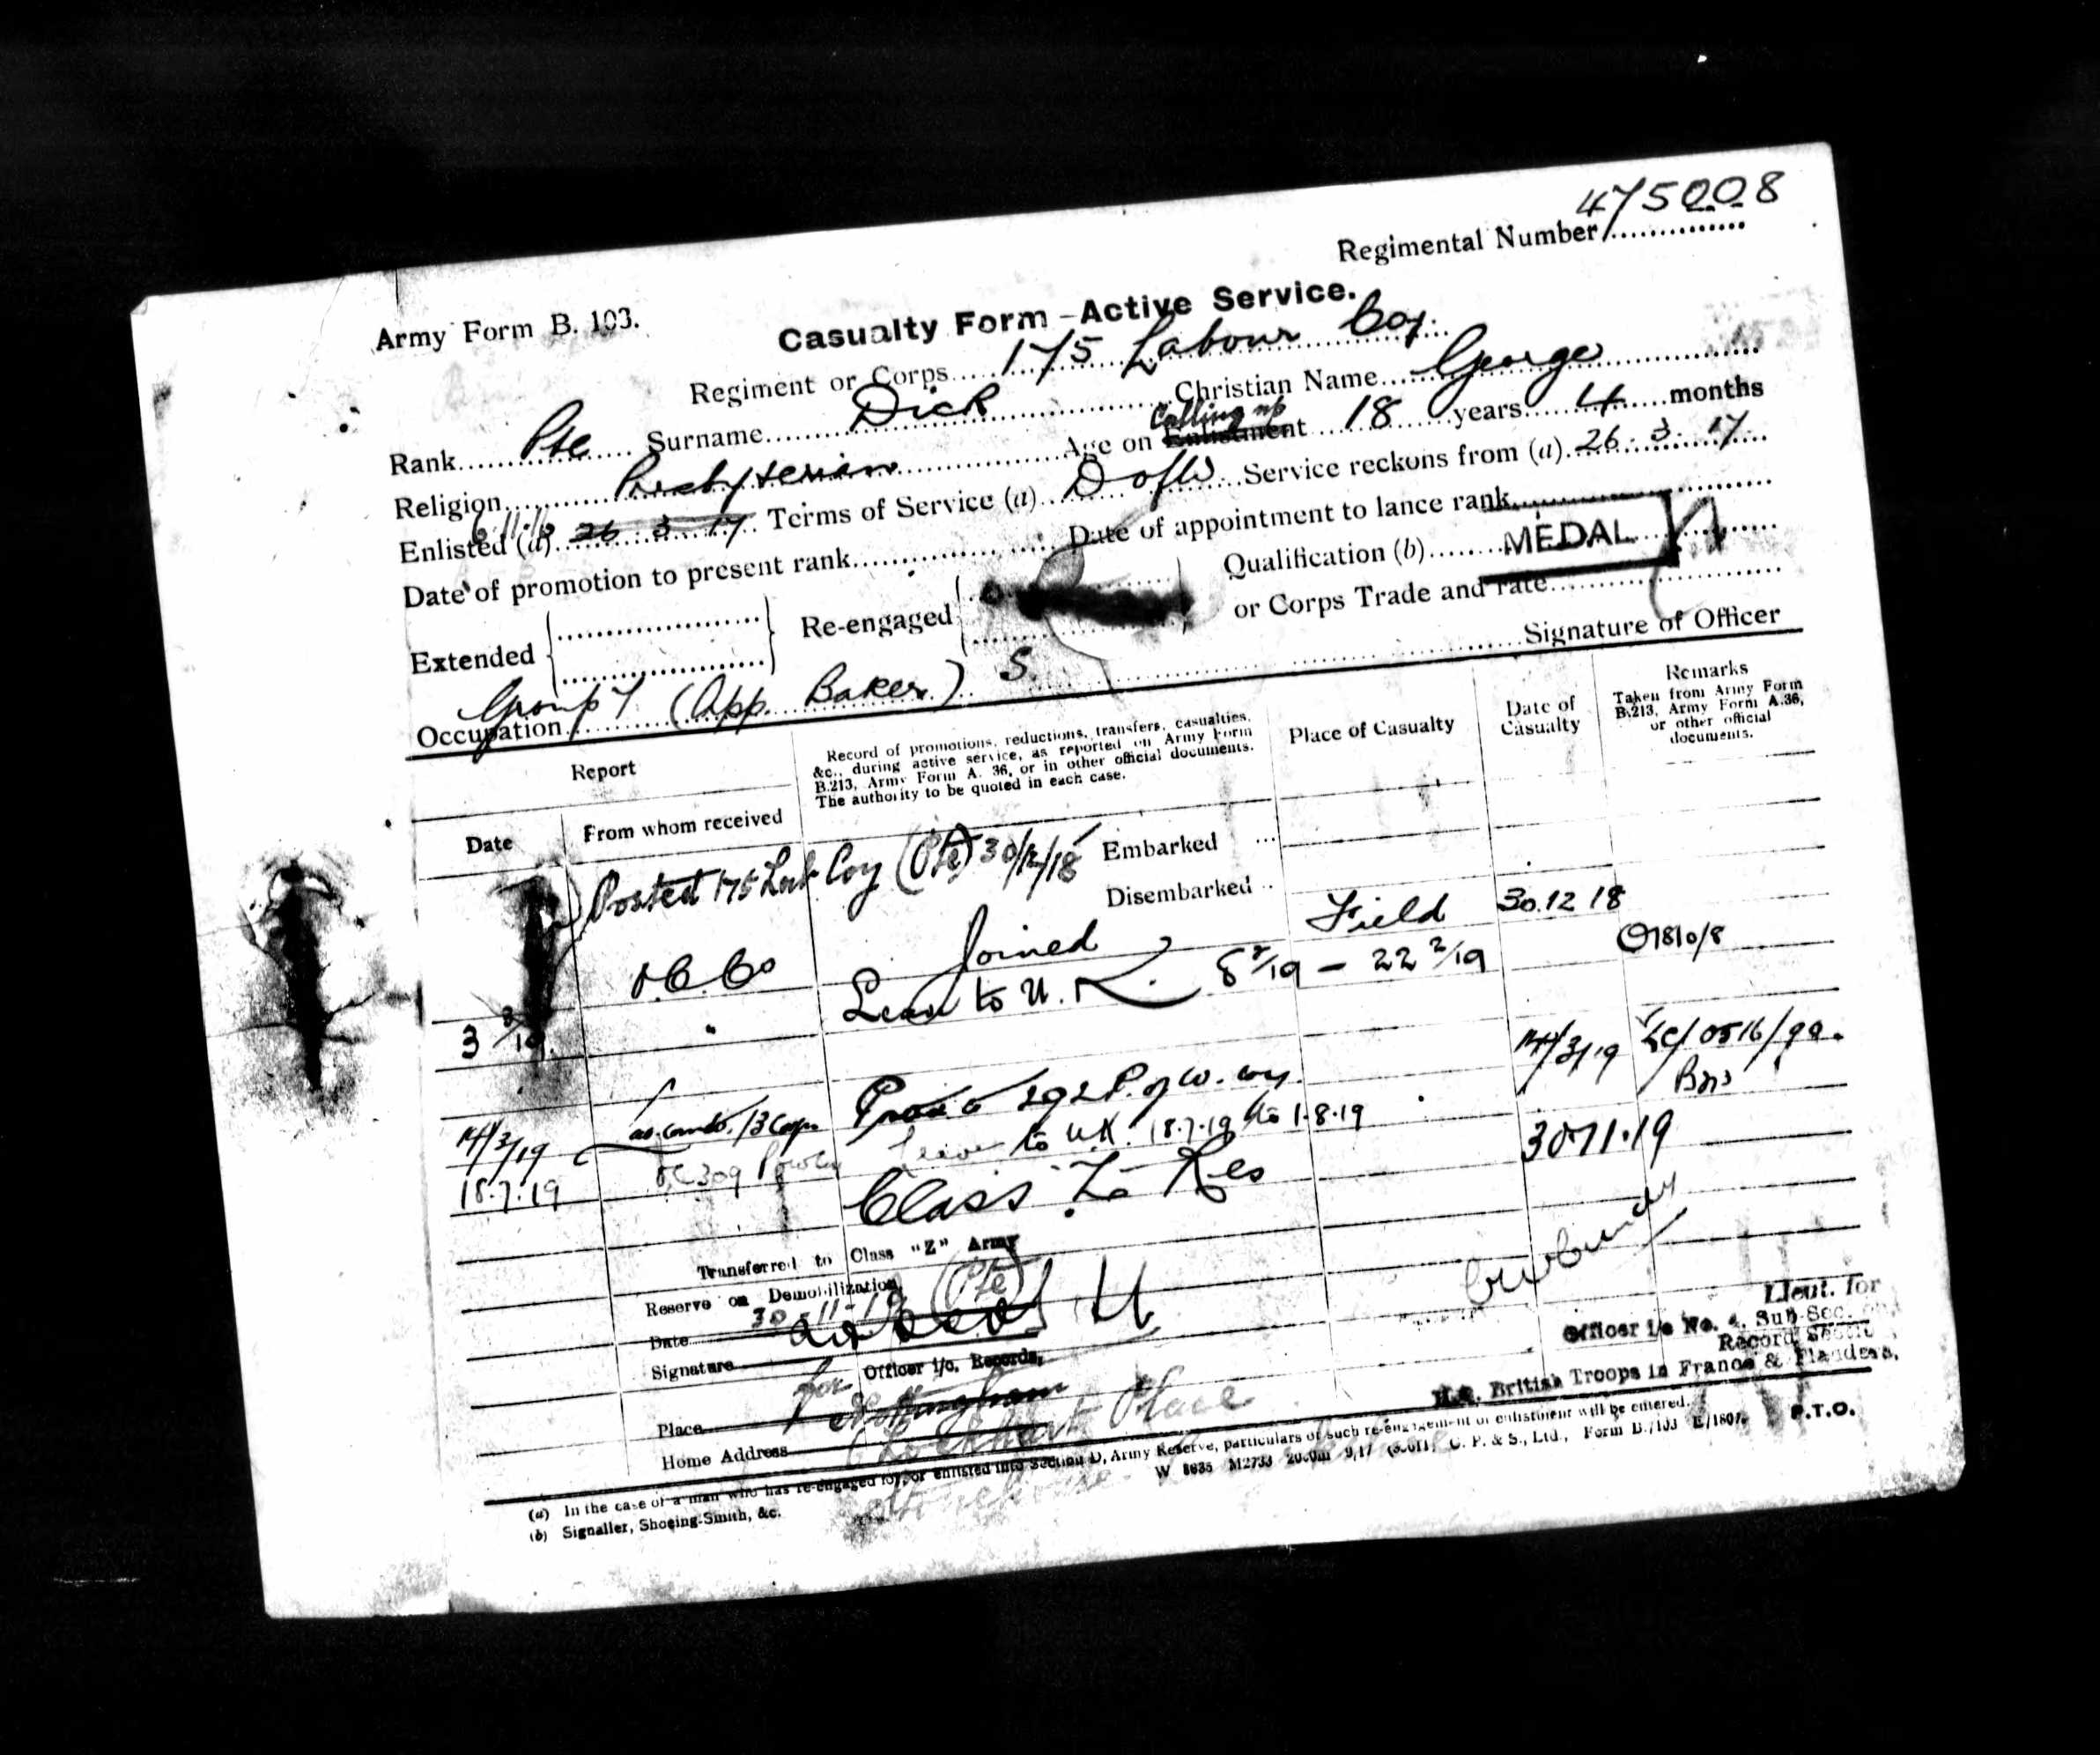 475008
Regimental Number
Army Form B. 103.
Casualty Form - Active Service.
Regiment or Corps 175 Labour Coy.
Rank Pte Surname Dick Christian Name George
Religion Presbyterian Age on Enlistment Calling up 18 years 4 months
Enlisted (a) 6.11.16 26 3 17 Terms of Service (a) DofW Service reckons from (a) 26.3.17
Date of promotion to present rank Date of appointment to lance rank
Extended Re-engaged Qualification (b) MEDAL
or Corps Trade and rate
Signature of Officer
Occupation Group 1 (App. Baker) S.
Report
Record of promotions, reductions, transfers, casualties, &c., during active service, as reported on Army Form B.213, Army Form A. 36, or in other official documents. The authority to be quoted in each case.
Place of Casualty
Date of Casualty
Remarks
Taken from Army Form B.213, Army Form A.36, or other official documents.
Date
From whom received
Posted 175 Lab Coy (Pte) 30/12/18
Embarked
Disembarked
O.C. Co Joined Field 30.12 18
3 3/19 " Leave to U.K. 8 2/19 - 22 2/19 O1810/8
14/3/19 292 P. of W. Coy. 14/3/19
18.7.19 O.C 309 Leave to UK. 18.7.19 to 1.8.19
Class Z Res 30.11.19
Transferred to Class "Z" Army
Reserve on Demobilization, (Pte)
Date 30-11-19
Signature
Officer i/c. Records,
for
Place Nottingham
Home Address Lockhart Place
Stonehouse
Lieut. for
Officer i/c No. 4. Sub-Sec.
Record Section
H.Q. British Troops in France & Flanders.
(a) In the case of a man who has re-engaged for, or enlisted into Section D, Army Reserve, particulars of such re-engagement or enlistment will be entered.
(b) Signaller, Shoeing-Smith, &c.
P.T.O.